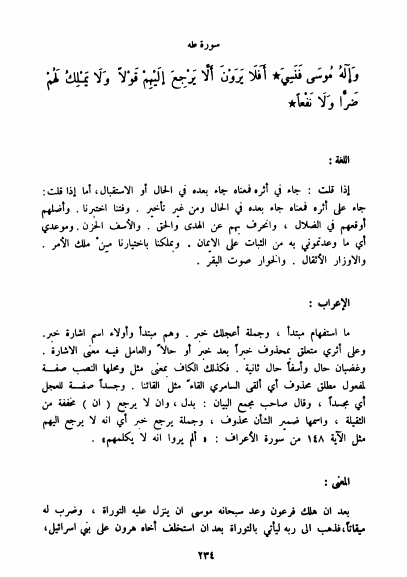 سورة طه
وَإِلَهُ مُوسَى فَنَسِيَ★ أَفَلَا يَرَوْنَ أَلَّا يَرْجِعُ إِلَيْهِمْ قَوْلاً وَلَا يَمْلِكُ لَهُمْ
ضَرًّا وَلَا نَفْعاً★
اللغة :
إذا قلت : جاء في أثره فمعناه جاء بعده في الحال أو الاستقبال، أما إذا قلت:
جاء على أثره فمعناه جاء بعده في الحال ومن غير تأخير . وفتنا اختبرنا . وأضلهم
أوقعهم في الضلال ، وانحرف بهم عن الهدى والحق . والأسف الحزن . وموعدي
أي ما وعدتموني به من الثبات على الايمان . وبملكنا باختيارنا مين ملك الأمر .
والاوزار الأثقال . والخوار صوت البقر .
الإعراب :
ما استفهام مبتدأ ، وجملة أعجلك خبر . وهم مبتدأ وأولاء اسم اشارة خبر.
وعلى أثري متعلق بمحذوف خبراً بعد خبر أو حالاً والعامل فيه معنى الاشارة .
وغضبان حال وأسفاً حال ثانية . فكذلك الكاف بمعنى مثل ومحلها النصب صفة
لمفعول مطلق محذوف أي ألقى السامري القاءً مثل القائنا . وجسداً صفة للعجل
أي مجسداً ، وقال صاحب مجمع البيان : بدل، وان لا يرجع ( ان ) مخففة من
الثقيلة ، واسمها ضمير الشأن محذوف ، وجملة يرجع خبر أي انه لا يرجع اليهم
مثل الآية ١٤٨ من سورة الأعراف : « ألم يروا انه لا يكلمهم» .
المعنى :
بعد ان هلك فرعون وعد سبحانه موسى ان ينزل عليه التوراة ، وضرب له
ميقاتاً،فذهب الى ربه ليأتي بالتوراة بعد ان استخلف أخاه هرون على بني اسرائيل،
٢٣٤